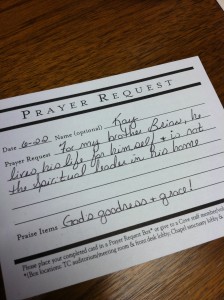 PRAYER REQUEST
Date 6-20 Name (optional) Kay
Prayer Request For my brother Brian, he
lives his life for himself & is not
the spiritual leader in his home
Praise Items God's goodness & grace!
Please place your completed card in a Prayer Request Box* or give to a Cove staff member
*(Box locations: TC auditorium/meeting room & front desk lobby, Chapel sanctuary lobby &